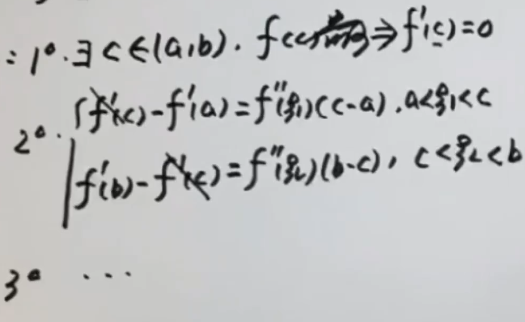 : 1°. ∃ c ∈ (a,b). f(c) ⇒ f'(c) = 0
2°. { f'(c) - f'(a) = f''(ξ₁)(c-a), a<ξ₁<c
f'(b) - f'(c) = f''(ξ₂)(b-c), c<ξ₂<b
3° ...